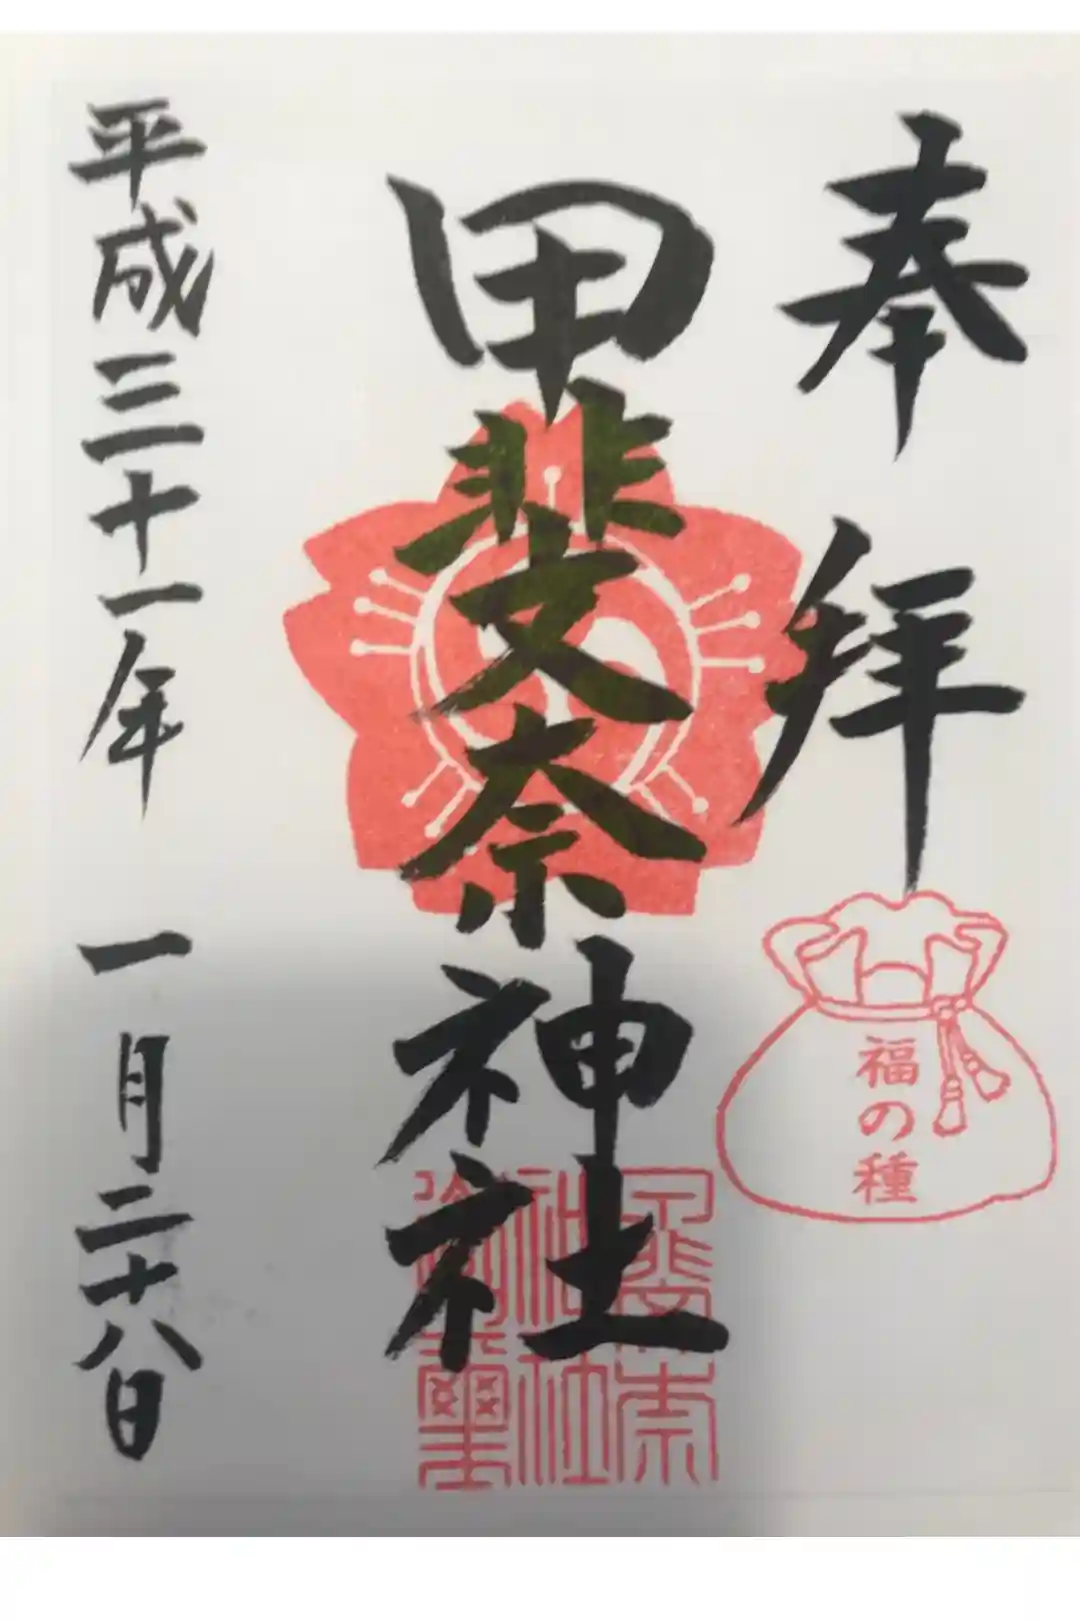 奉拝
福の種
甲斐奈神社
平成三十一年 一月二十八日